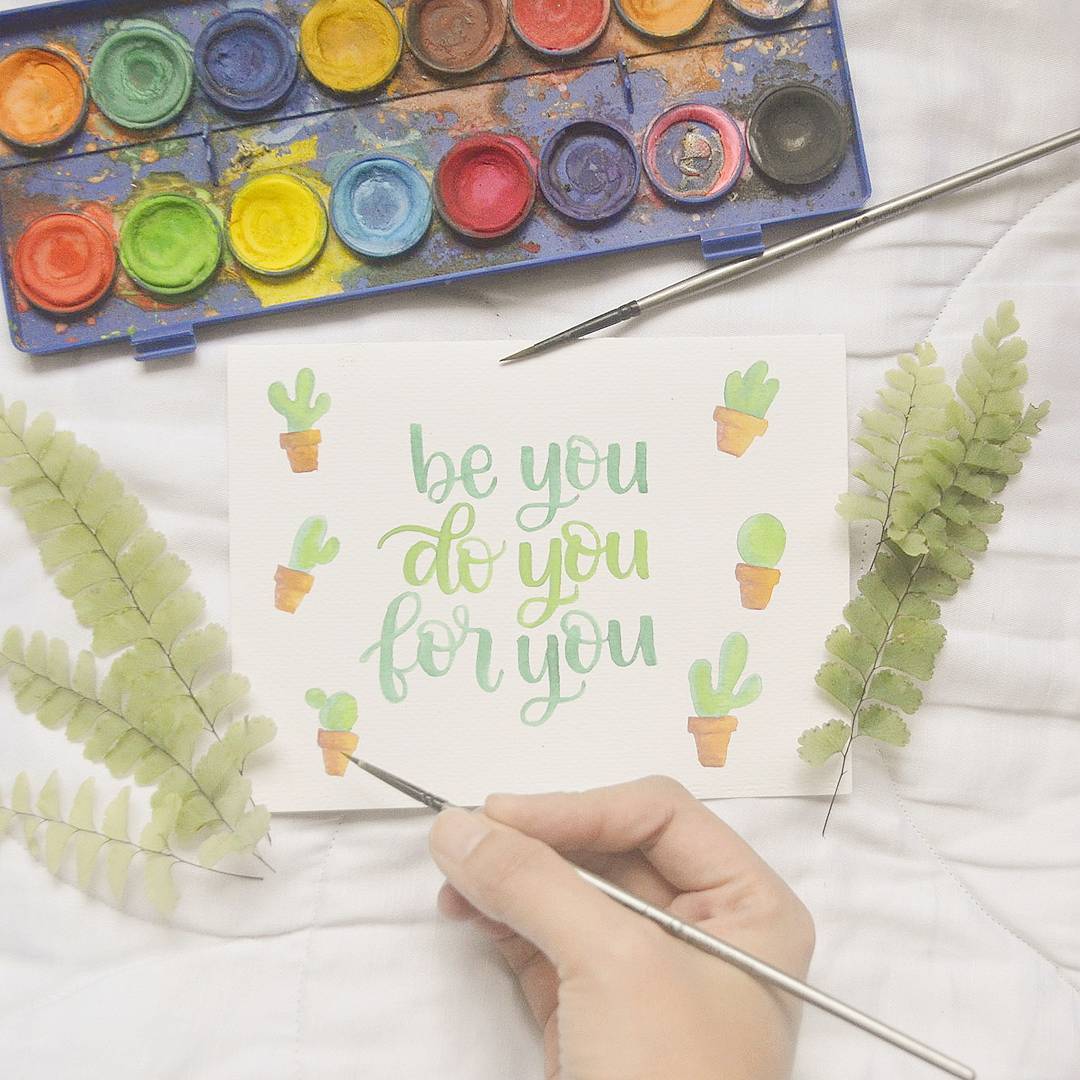 be you
do you
for you